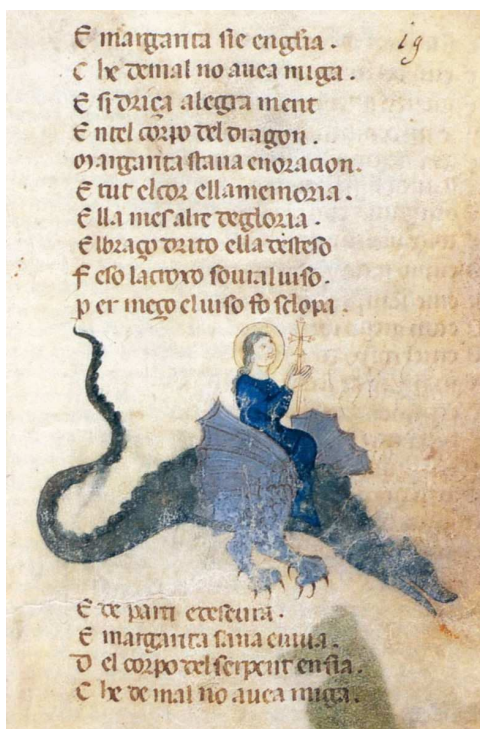 E margarita sie englia. 19
C he demal no avea miga.
E si driça alegra ment
E ntel corpo del dragon.
Margarita stava enoracion.
E tut elcor ella memoria.
E lla mes alre degloria.
E lbraço drito ella desteso
F eso lacrovo sovral viso.
P er meço elviso fo sclopa.
E de parti edesevra.
E margarita sana eviva.
D el corpo del serpent ensia.
C he de mal no avea miga.